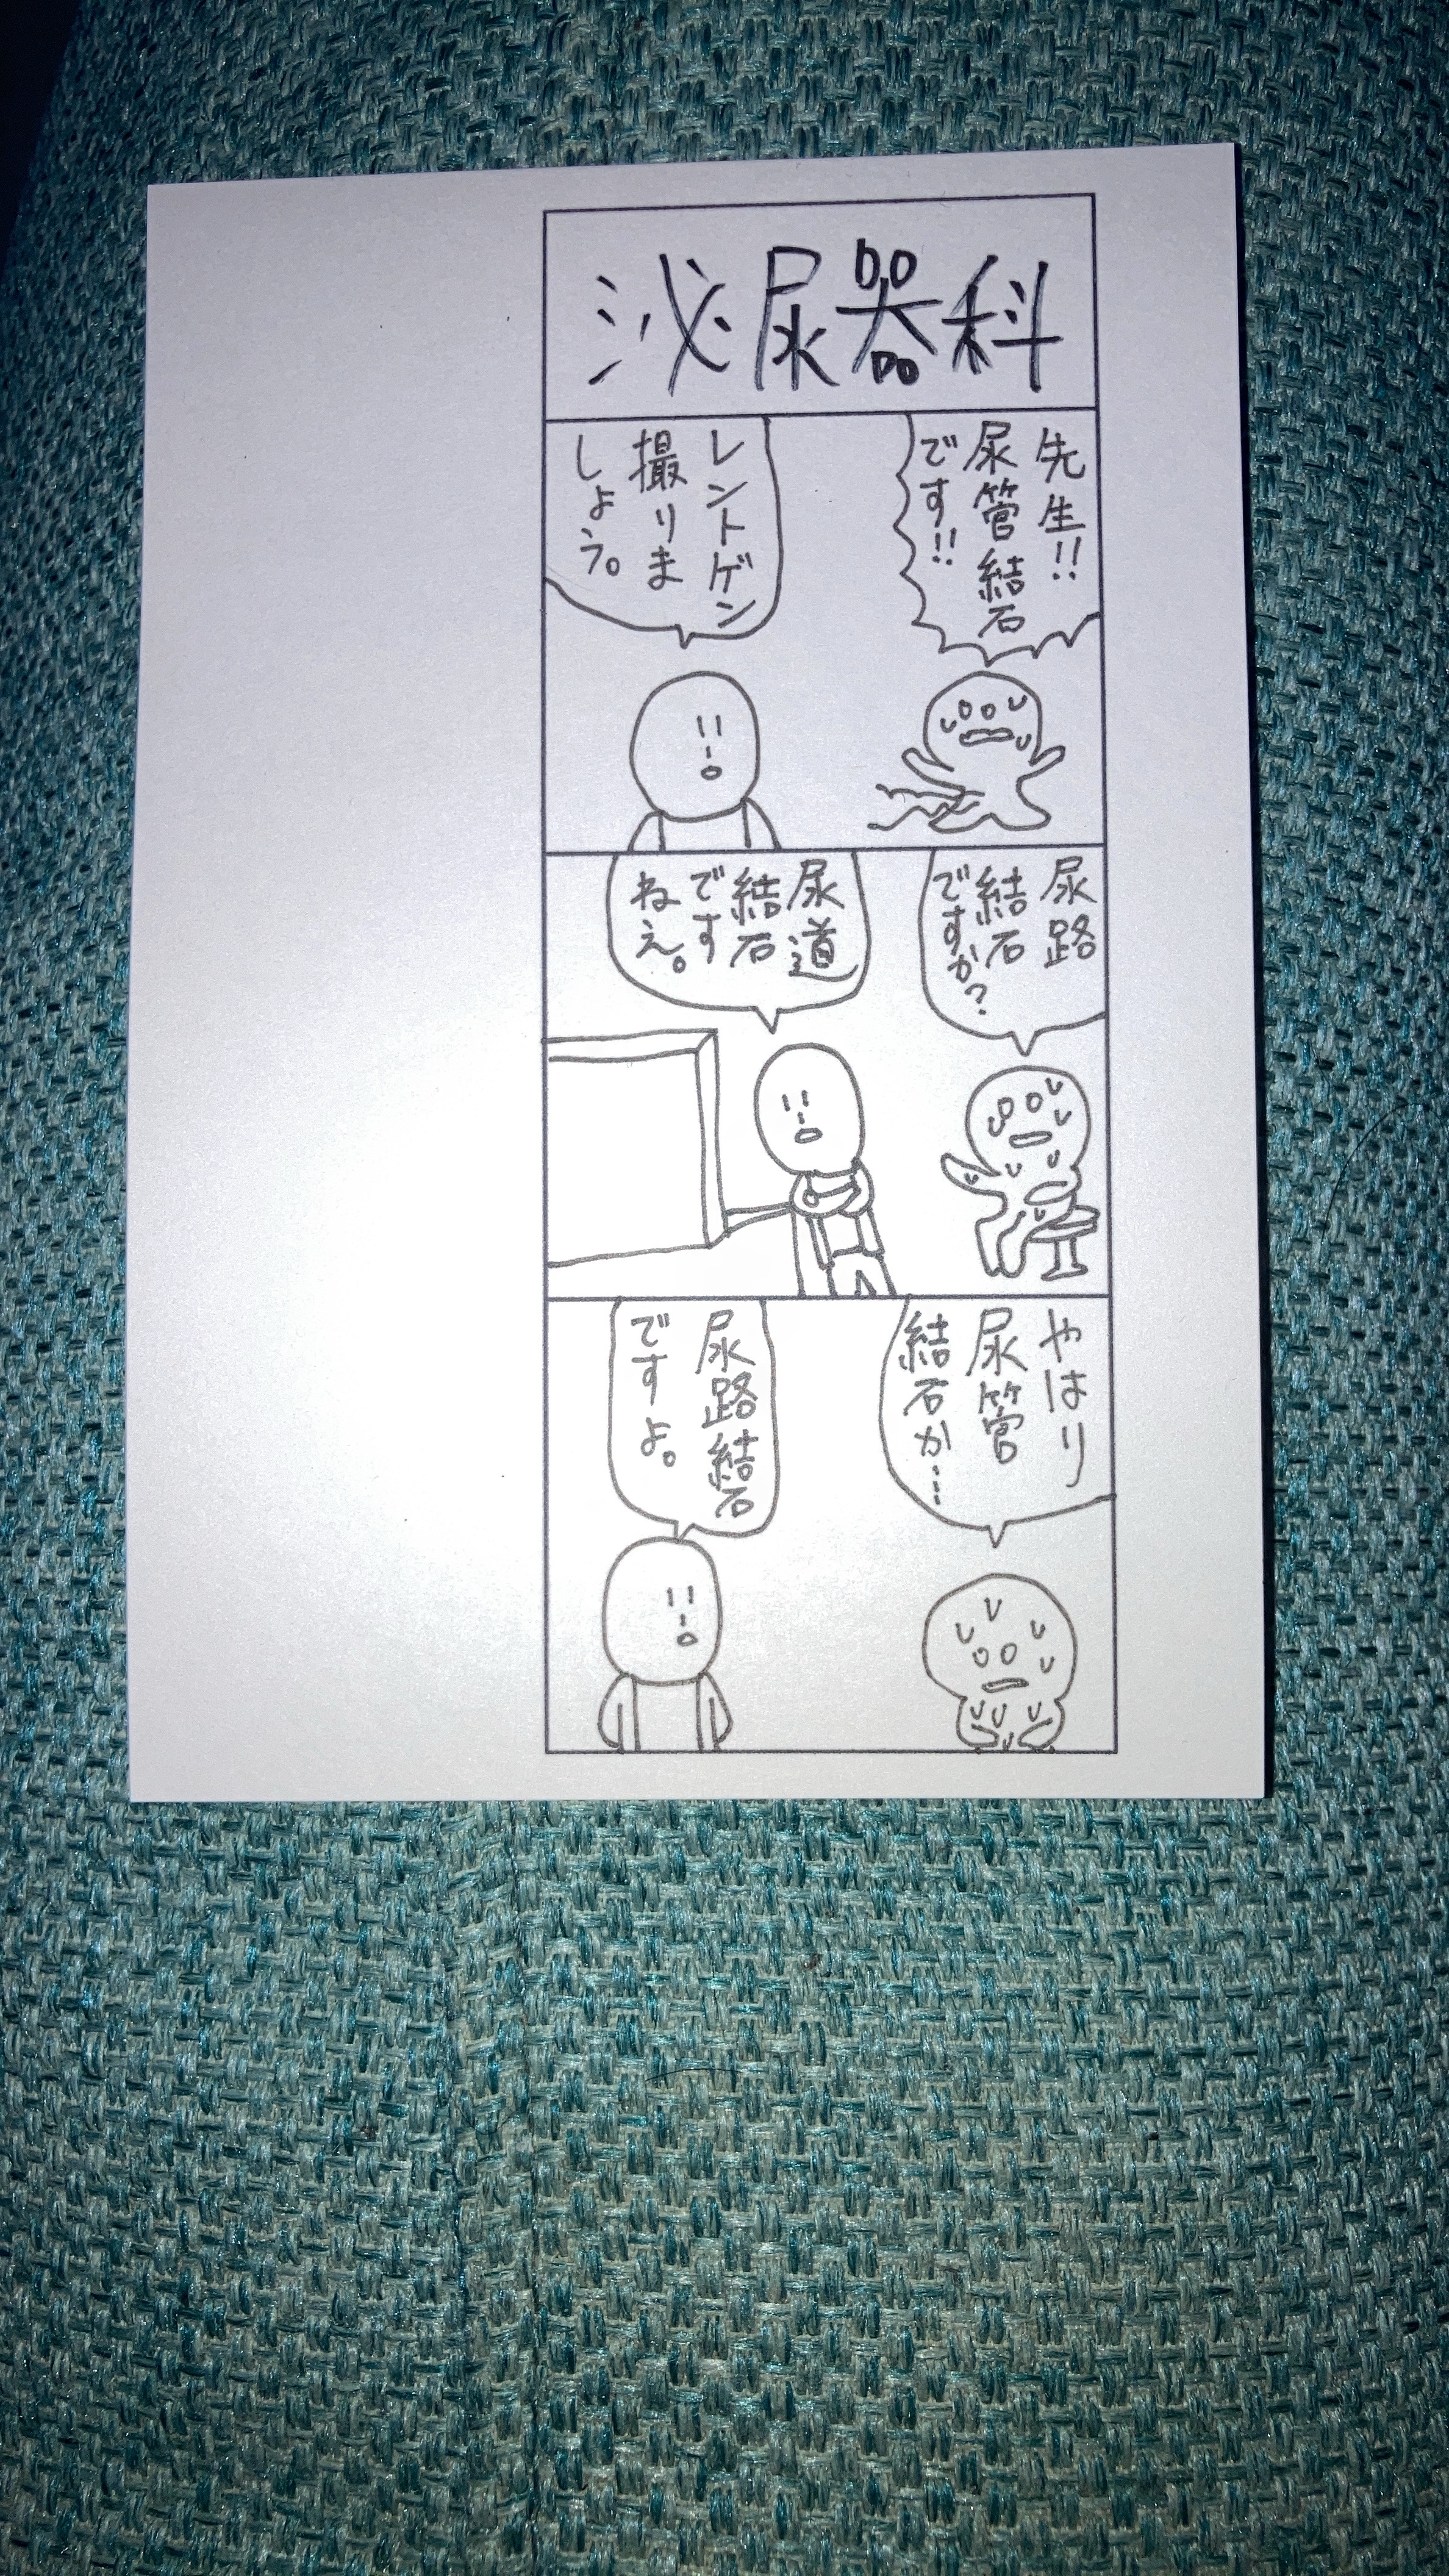 泌尿器科
先生!!
尿管結石
です!!
レントゲン
撮りま
しょう。
尿路
結石
ですか?
尿道
結石
です
ねえ。
やはり
尿管
結石か…
尿路結石
ですよ。